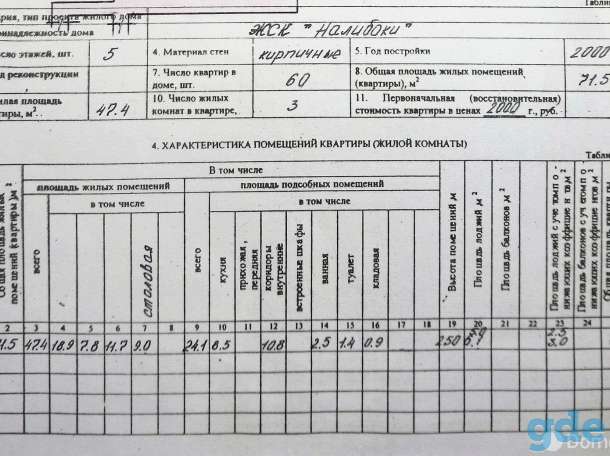 ария, тип проекта жилого дома
ринадлежность дома ЖСК "Налибоки"
Таблиц
сло этажей, шт. 5 4. Материал стен кирпичные 5. Год постройки 2000
д реконструкции 7. Число квартир в доме, шт. 60 8. Общая площадь жилых помещений (квартиры), м² 71.5
илая площадь тиры, м² 47.4 10. Число жилых комнат в квартире, 3 11. Первоначальная (восстановительная) стоимость квартиры в ценах 2000 г., руб.
4. ХАРАКТЕРИСТИКА ПОМЕЩЕНИЙ КВАРТИРЫ (ЖИЛОЙ КОМНАТЫ)
Табли
В том числе
площадь жилых помещений площадь подсобных помещений
в том числе в том числе
Общая площадь жилых помещений (квартиры), м²
всего
столовая
всего
кухня
прихожая, передняя
коридоры внутренние
встроенные шкафы
ванная
туалет
кладовая
Высота помещений, м
Площадь лоджий, м²
Площадь балконов, м²
Площадь лоджий с учетом понижающих коэффициентов, м²
Площадь балконов с учетом понижающих коэффициентов, м²
2 3 4 5 6 7 8 9 10 11 12 13 14 15 16 17 18 19 20 21 22 23 24
1.5 47.4 18.9 7.8 11.7 9.0 24.1 8.5 10.8 2.5 1.4 0.9 250 2.5
3.0
gde
Domo